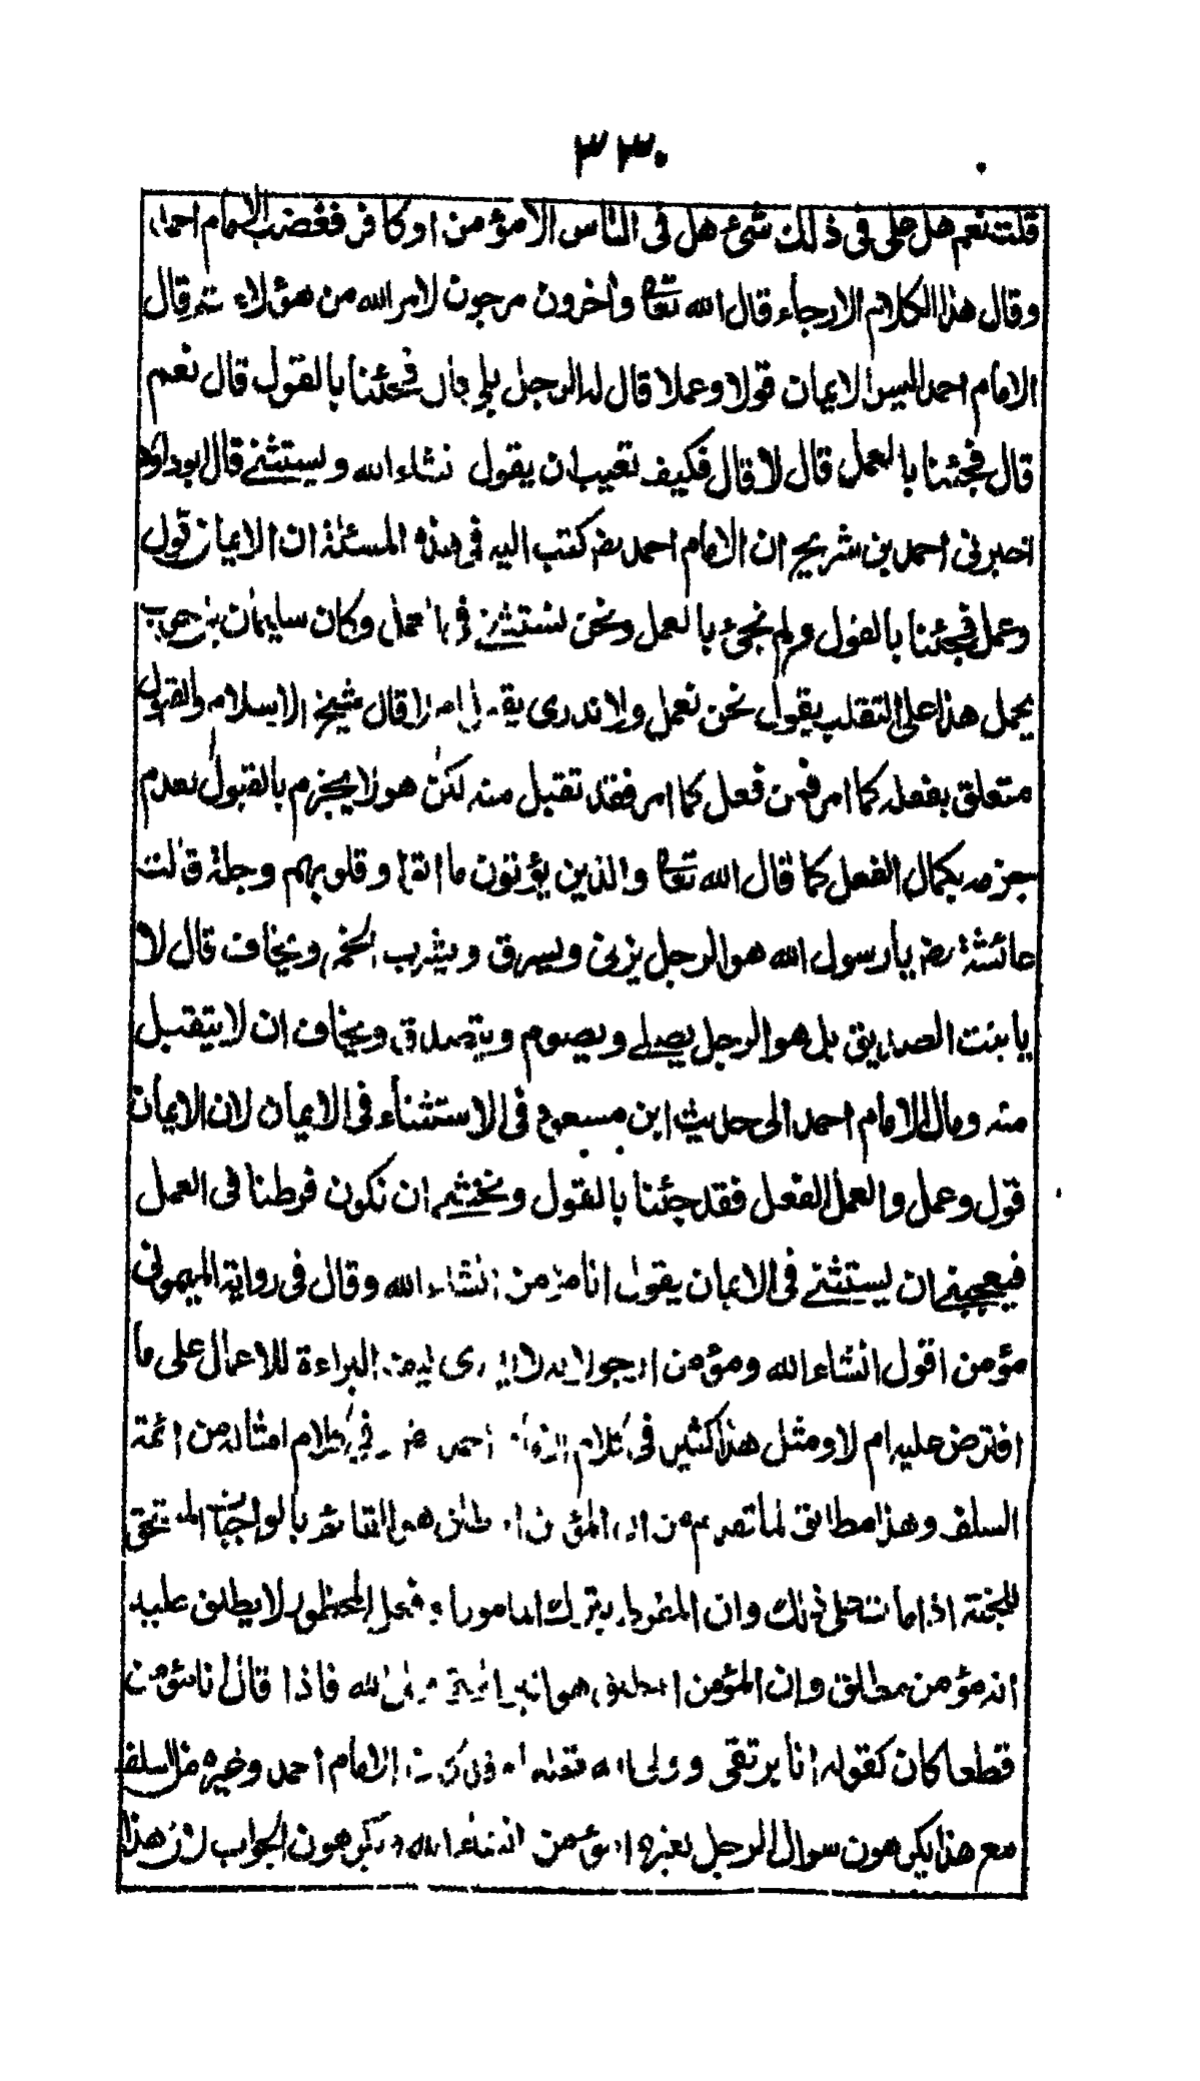 ٣٣٠
قلت نعم هل علي في ذلك شئ هل في الناس الا مؤمن او كافر فغضب الامام احمد
وقال هذا الكلام الارجاء قال الله تعا وأخرون مرجون لامر الله من هؤلاء ثم قال
الامام احمد اليس الايمان قولا وعملا قال له الرجل بلى قال فجئنا بالقول قال نعم
قال فجئنا بالعمل قال لا قال فكيف تعيب ان يقول نشاء الله ويستثنے قال ابو داؤد
اخبرنى احمد بن شريح ان الامام احمد رضـ كتب اليه فى هذه المسئلة ان الايمان قول
وعمل فجئنا بالقول ولم نجئ بالعمل ونحن نستثنے فى العمل وكان سليمان بن حرب
يحمل هذا على التقلب يقول نحن نعمل ولا ندرى يقبل ام لا قال شيخ الاسلام والقبول
متعلق بفعله كما امر فمن فعل كما امر فقد تقبل منه لكن هو لا يجزم بالقبول لعدم
جزمه بكمال الفعل كما قال الله تعا والذين يؤتون ما اتوا وقلوبهم وجلة قالت
عائشة رضـ يا رسول الله هو الرجل يزنى ويسرق ويشرب الخمر ويخاف قال لا
يا بنت الصديق بل هو الرجل يصلے ويصوم ويتصدق ويخاف ان لا يتقبل
منه ومال الامام احمد الى حديث ابن مسعود فى الاستثناء فى الايمان لان الايمان
قول وعمل والعمل الفعل فقد جئنا بالقول ونخشے ان نكون فرطنا فى العمل
فيعجبنے ان يستثنے فى الايمان يقول انا مؤمن انشاء الله وقال فى رواية الميمونى
مؤمن اقول انشاء الله ومؤمن ارجو لانه لا يدرى كيف البراءة للاعمال على ما
افترض عليه ام لا ومثل هذا كثير فى كلام احمد وفى كلام امثاله من ائمة
السلف وهذا مطابق لما تقدم من ان المؤمن المطلق هو القائم بالواجبات المستحق
للجنة اذا مات على ذلك وان المفرط بترك المامور او فعل المحظور لا يطلق عليه
انه مؤمن مطلق وان المؤمن المطلق هو البر التقى ولى الله فاذا قال انا مؤمن
قطعا كان كقوله انا بر تقى وولى الله قطعا وقد كان الامام احمد وغيره من السلف
مع هذا يكرهون سوال الرجل لغيره امؤمن انت ويكرهون الجواب لان هذا